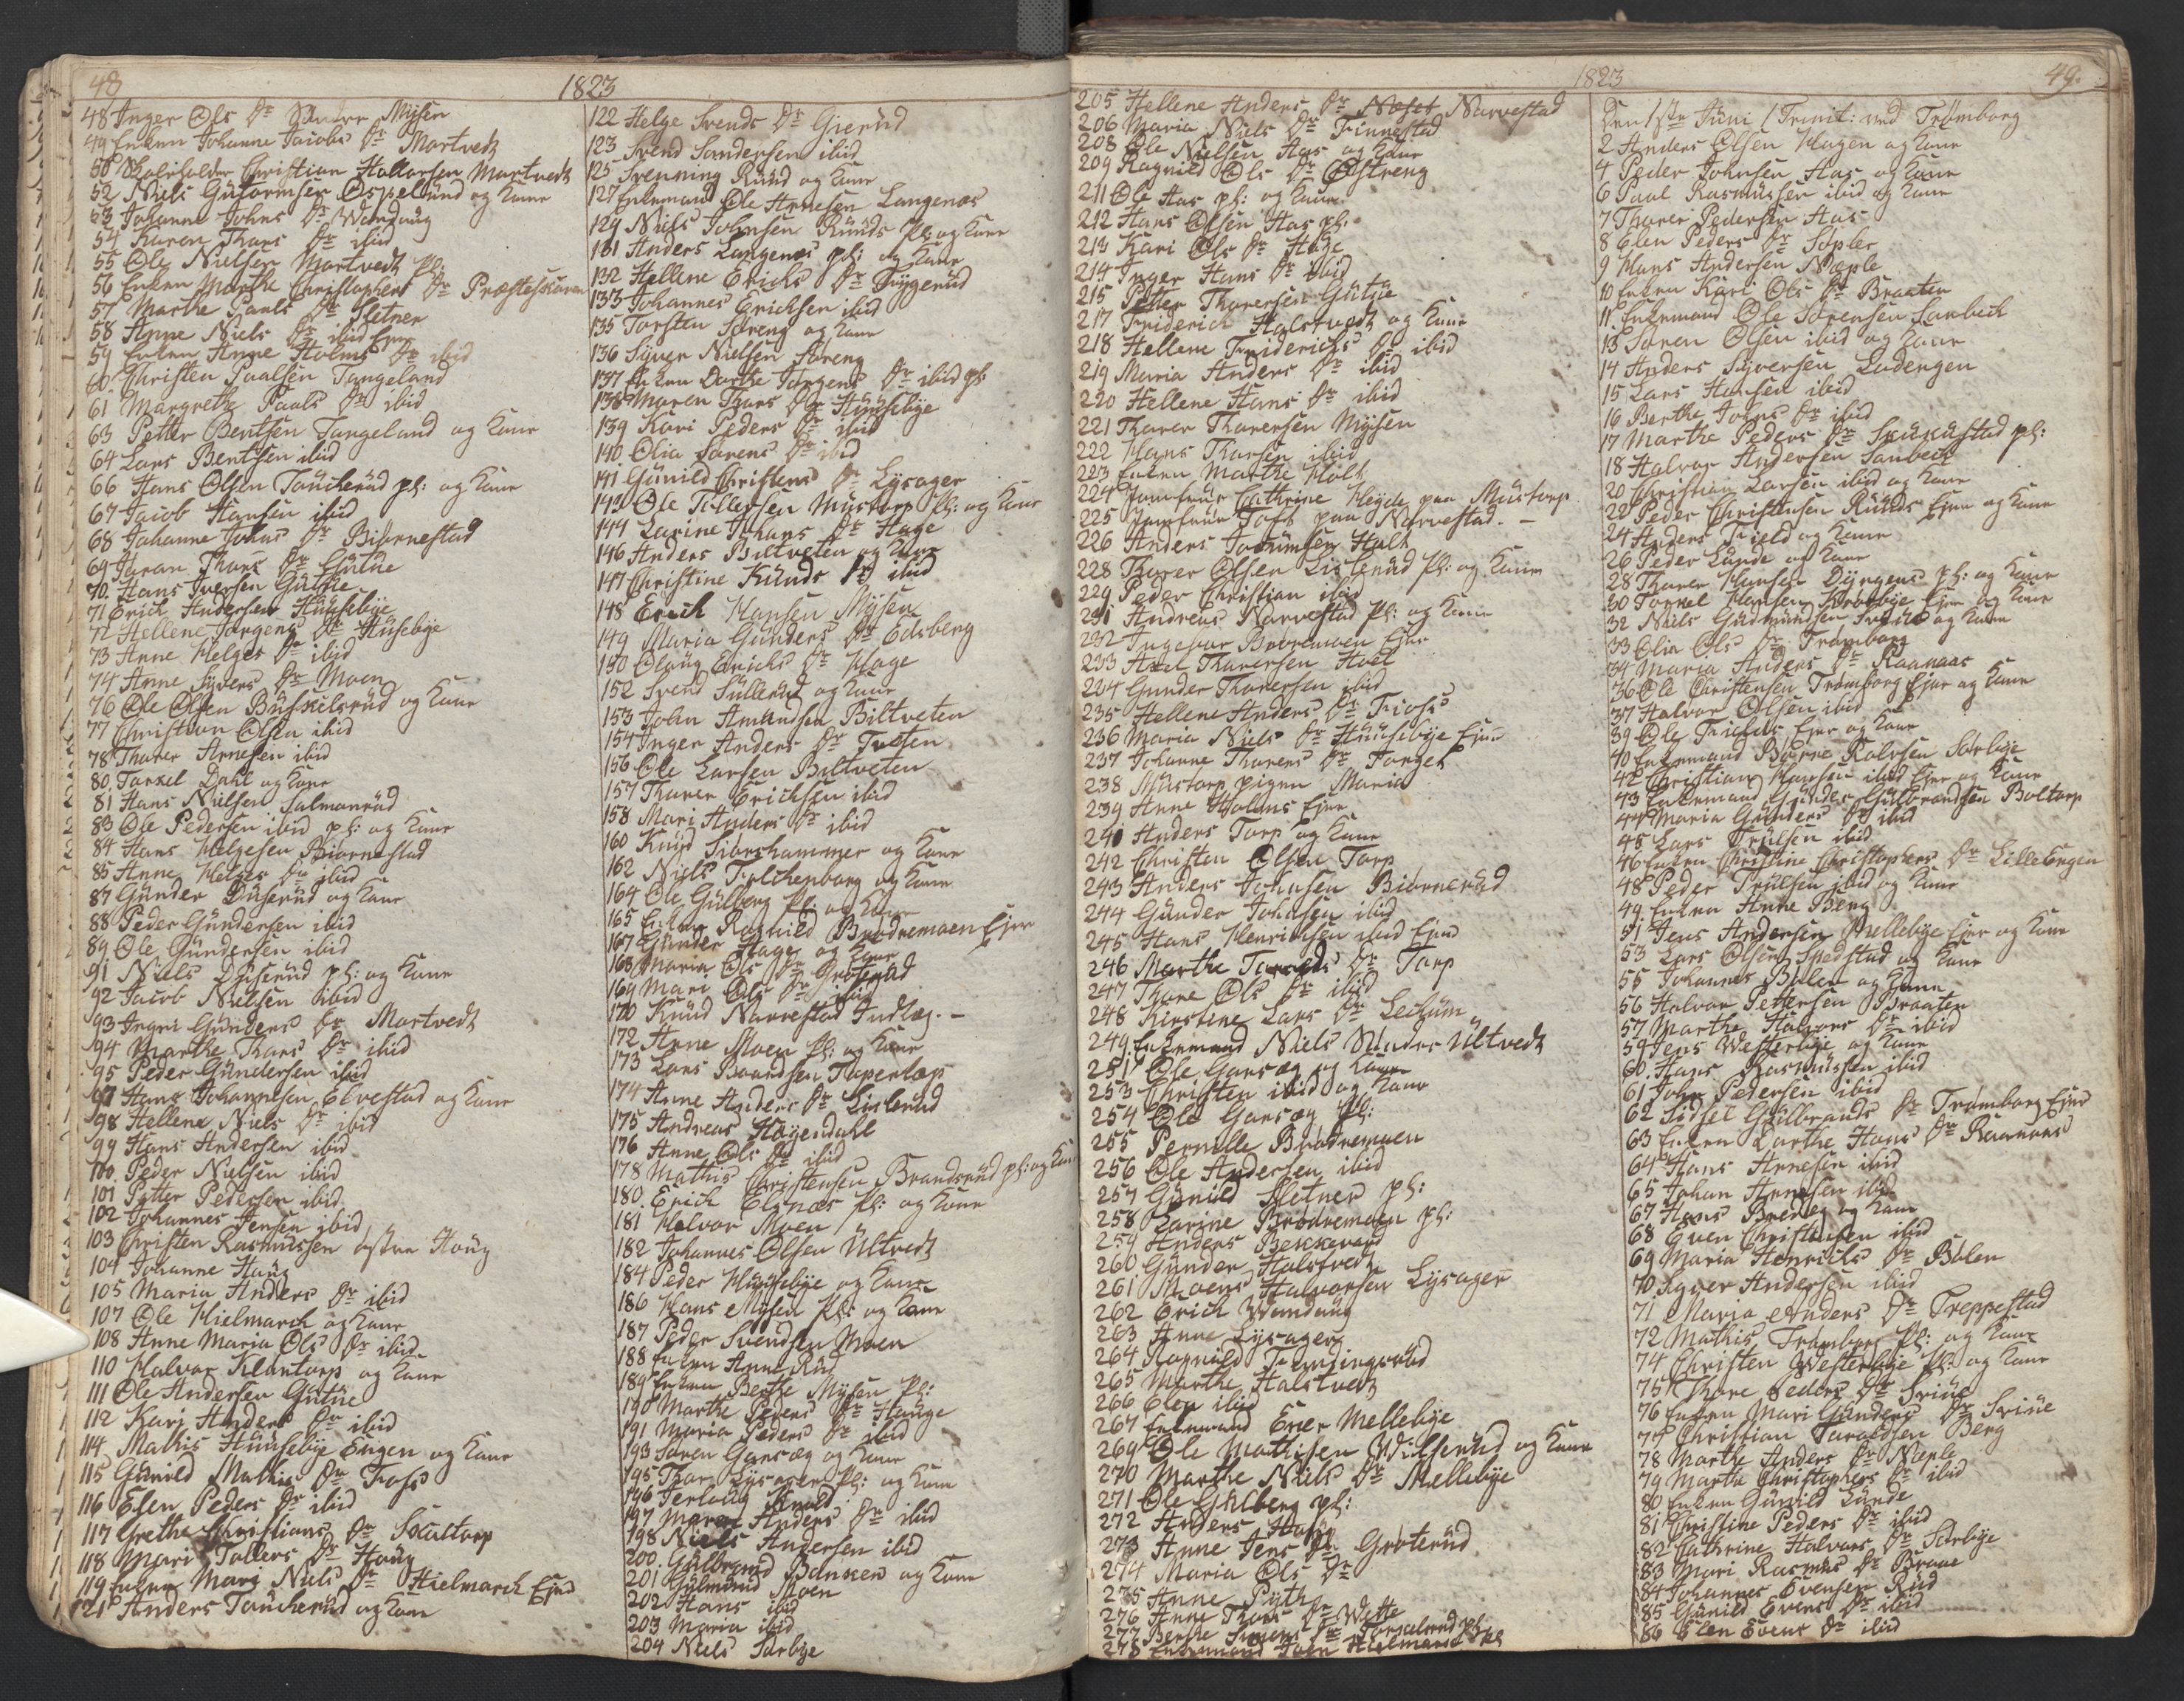 48
1823
48 Inger Ols Dr Søndre Mysen
49 Enken Johanne Jacobs Dr Martvedt
50 Christian Hallorsen Martvedt
52 Niels Gutormsen Ospelund og Kone
53 Johanne Johns Dr Wandaug
54 Karen Thors Dr ibid
55 Ole Nielsen Martvedt pl:
56 Enken Marthe Christophers Dr Præsteskoven
57 Marthe Paals Dr Sletner
58 Anne Niels Dr ibid Ejer
59 Enken Anne Holms Dr ibid
60 Christen Paalsen Tangeland
61 Margrethe Paals Dr ibid
63 Petter Bentsen Tangeland og Kone
64 Lars Bentsen ibid
66 Hans Olsen Toucherud pl: og Kone
67 Jacob Hansen ibid
68 Johanne Johns Dr Biørnestad
69 Joran Thors Dr Gutue
70. Hans Iversen Gutue
71 Erich Andersen Huusebye
72 Hellene Jørgens Dr Husebye
73 Anne Helges Dr ibid
74 Anne Syvers Dr Moen
76 Ole Olsen Buskelsrud og Kone
77 Christian Olsen ibid
78 Thorer Arnesen ibid
80. Torkel Dahl og Kone
81 Hans Nielsen Salmonrud
83 Ole Pedersen ibid pl: og Kone
84 Hans Helgesen Biørnestad
85 Anne Helges Dr ibid
87 Gunder Duserud og Kone
88 Peder Gundersen ibid
89 Ole Gundersen ibid
91 Niels Duserud pl: og Kone
92 Jacob Nielsen ibid
93 Ingri Gunders Dr Martvedt
94 Marthe Thors Dr ibid
95 Peder Gundersen ibid
97 Hans Johannesen Elvestad og Kone
98 Hellene Niels Dr ibid
99 Hans Andersen ibid
100. Peder Nielsen ibid
101 Petter Pedersen ibid
102 Johannes Jensen ibid
103 Christen Rasmussen østre Houg
104 Johanne Houg
105 Maria Anders Dr ibid
107 Ole Hielmarch og Kone
108 Anne Maria Ols Dr ibid
110 Halvor Klontorp og Kone
111 Ole Andersen Gutue
112 Kari Anders Dr ibid
114 Mathis Huusebye Engen og Kone
115 Gunild Mathis Dr Foss
116 Elen Peders Dr ibid
117 Grethe Christians Dr Soultorp
118 Mari Tollers Dr Houg
119 Enken Mari Niels Dr Hielmarch Ejer
121 Anders Toucherud og Kone
122 Helge Svends Dr Gierud
123 Svend Sandersen ibid
125 Svenning Ruud og Kone
127 Enkemand Ole Arnesen Langenæs
129 Niels Johnsen Ruuds pl: og Kone
131 Anders Langenæs pl: og Kone
132 Hellene Erichs Dr Tygerud
133 Johannes Erichsen ibid
135 Torsten Søreng og Kone
136 Syver Nielsen Søreng
137 Enken Dorthe Jørgens Dr ibid pl:
138 Maren Thors Dr Huusebye
139 Kari Peders Dr ibid
140 Olia Sørens Dr ibid
141 Gunild Christens Dr Lysager
143 Ole Tollersen Mustorp pl: og Kone
144 Larine Johans Dr Hage
146 Anders Biltveten og Kone
147 Christine Knuds Dr ibid
148 Erich Hansen Mysen
149 Maria Gunders Dr Edsberg
150 Olaug Erichs Dr Hage
152 Svend Sullerud og Kone
153 John Amundsen Biltveten
154 Inger Anders Dr Tvesen
156 Ole Larsen Biltveten
157 Thorer Erichsen ibid
158 Mari Anders Dr ibid
160 Knud Siorshammer og Kone
162 Niels Folchenborg og Kone
164 Ole Gulberg pl: og Kone
165 Enken Ragnild Brødremoen Ejer
167 Gunder Hage og Kone
168 Maria Ols Dr Grøterud
169 Mari Ols Dr ibid
170 Knud Narvestad Indlæg. -
172 Anne Moen pl: og Kone
173 Lars Baardsen Toperløp
174 Anne Anders Dr Lislerud
175 Andreas Høyendahl
176 Anne Ols Dr ibid
178 Mathis Christensen Brandsrud pl: og Kone
180. Erich Elsnæs pl: og Kone
181 Halvor Moen
182 Johannes Olsen Ultvedt
184 Peder Huusebye og Kone
186 Hans Mysen pl: og Kone
187 Peder Svendsen Moen
188 Enken Anne Rud
189 Enken Berthe Mysen pl:
190 Marthe Peders Dr Hauge
191 Maria Peders Dr ibid
193 Søren Garsæg og Kone
195 Thor Lysager pl: og Kone
196 Terlaug
197 Maren Anders Dr ibid
198 Niels Andersen ibid
200. Gulbrand Banken og Kone
201 Gulmund Moen
202 Hans ibid
203 Maria ibid
204 Niels Sørbye
1823
49.
205 Hellene Anders Dr Narvestad
206 Maria Niels Dr Finnestad
208 Ole Nielsen Aas og Kone
209 Ragnild Ols Dr Østreng
211 Ole Aas pl: og Kone
212 Hans Olsen Aas pl:
213 Kari Ols Dr Hage
214 Inger Hans Dr ibid
215 Petter Thorersen Gutue
217 Friderich Halstvedt og Kone
218 Hellene Friderichs Dr ibid
219 Maria Anders Dr ibid
220 Hellene Hans Dr ibid
221 Thorer Thorersen Mysen
222 Hans Thorsen ibid
223 Enken Marthe Holt
224 Jomfrue Cathrine Heyde paa Mustorp
225 Jomfrue Toft paa Narvestad. -
226 Anders Joramsen Holt
228 Thorer Olsen Lislerud pl: og Kone
229 Peder Christian ibid
231 Andreas Narvestad pl: og Kone
232 Ingebor Brødremoen Ejer
233 Axel Thorersen Hoel
234 Gunder Thorersen ibid
235 Hellene Anders Dr Foss
236 Maria Niels Dr Huusebye Ejer
237 Johanne Thorers Dr Torget
238 Mustorp pigen Maria
239 Anne Holms Ejer
241 Anders Torp og Kone
242 Christen Olsen Torp
243 Anders Johnsen Biørnerud
244 Gunder Johnsen ibid
245 Hans Henrichsen ibid Ejer
246 Marthe Torreds Dr Torp
247 Thore Ols Dr ibid
248 Kirstine Lars Dr Lechum
249. Enkemand Niels Søndre Ultvedt
251 Ole Garsæg og Kone
253 Christen ibid og Kone
254 Ole Garsæg pl:
255 Pernille Brødremoen
256 Ole Andersen ibid
257 Gunild Sletner pl:
258 Karine Brødremoen pl:
259 Anders Bekkevard
260 Gunder Halstvedt
261 Moens Halvorsen Lysager
262 Erich Wandaug
263 Anne Lysager
264 Ragnild
265 Marthe Halstvedt
266 Elen ibid
267 Enkemand Ener Mellebye
269 Ole Mathisen Wilserud og Kone
270 Marthe Niels Dr Mellebye
271 Ole Gulberg pl:
272 Anders Houg
273 Anne Jens Dr Grøterud
274 Maria Ols Dr
275 Anne Pyth
276 Anne Thors Dr Wette
277 Berthe Simens Dr
278 Enkemand Hielmarch pl:
Den 1ste Juni 1 Trinit: ved Trømborg
2 Anders Olsen Hagen og Kone
4 Peder Johnsen Aas og Kone
6 Paul Rasmussen ibid og Kone
7 Thorer Pedersen Aas
8 Elen Peders Dr Sopler
9 Hans Andersen Næple
10 Enken Kari Ols Dr Braaten
11 Enkemand Ole Sørensen Sanbech
13 Søren Olsen ibid og Kone
14 Anders Syversen Ladengen
15 Lars Hansen ibid
16 Berthe Johns Dr ibid
17 Marthe Peders Dr Skukustad pl:
18 Halvor Andersen Sanbech
20 Christian Larsen ibid og Kone
22 Peder Christensen Ruuds Ejer og Kone
24 Anders Field og Kone
26 Peder Lunde og Kone
28 Thorer Hansen Dyrgens pl: og Kone
30 Torkel Hansen Kirkebye Ejer og Kone
32 Niels Gudmundsen og Kone
33 Olia Ols Dr Trømborg
34 Maria Anders Dr Raanaas
36 Ole Christensen Trømborg Ejer og Kone
37 Halvor Olsen ibid
39 Ole Ejer og Kone
40 Enkemand Bøyne Rolvsen Sørbye
42 Christian Hansen ibid Ejer og Kone
43 Enkemand Gunder Gulbrandsen Boltorp
44 Maria Gunders Dr ibid
45 Lars Trulsen ibid
46 Enken Christine Christophers Dr Lilleengen
48 Peder Trulsen ibid og Kone
49. Enken Anne Berg
51 Jens Andersen Mellebye Ejer og Kone
53 Lars Olsen Spedstad og Kone
55 Johannes Bølen og Kone
56 Halvor Pettersen Braaten
57 Marthe Halvors Dr ibid
59 Jens Westerbye og Kone
60. Hans Rasmussen ibid
61 John Pedersen ibid
62 Sidsel Gulbrands Dr Trømborg Ejer
63 Enken Dorthe Hans Dr Raanaas
64 Hans Arnesen ibid
65 Johan Arnesen ibid
67 Hans Bredeg og Kone
68 Even Christensen ibid
69 Maria Henrichs Dr Bølen
70. Syver Andersen ibid
71 Maria Anders Dr Treppestad
72 Mathis Trømborg pl: og Kone
74 Christen Westerbye pl: og Kone
75 Thore Peders Dr Friue
76 Enken Mari Gunders Dr Friue
77 Christian Taraldsen Berg
78 Marthe Anders Dr Næple
79 Marthe Christophers Dr ibid
80 Enken Gunild Lunde
81 Christine Peders Dr ibid
82 Cathrine Halvors Dr Sørbye
83 Mari Rasmus Dr Braae
84 Johannes Evensen Rud
85 Gunild Evens Dr ibid
86 Elen Evens Dr ibid